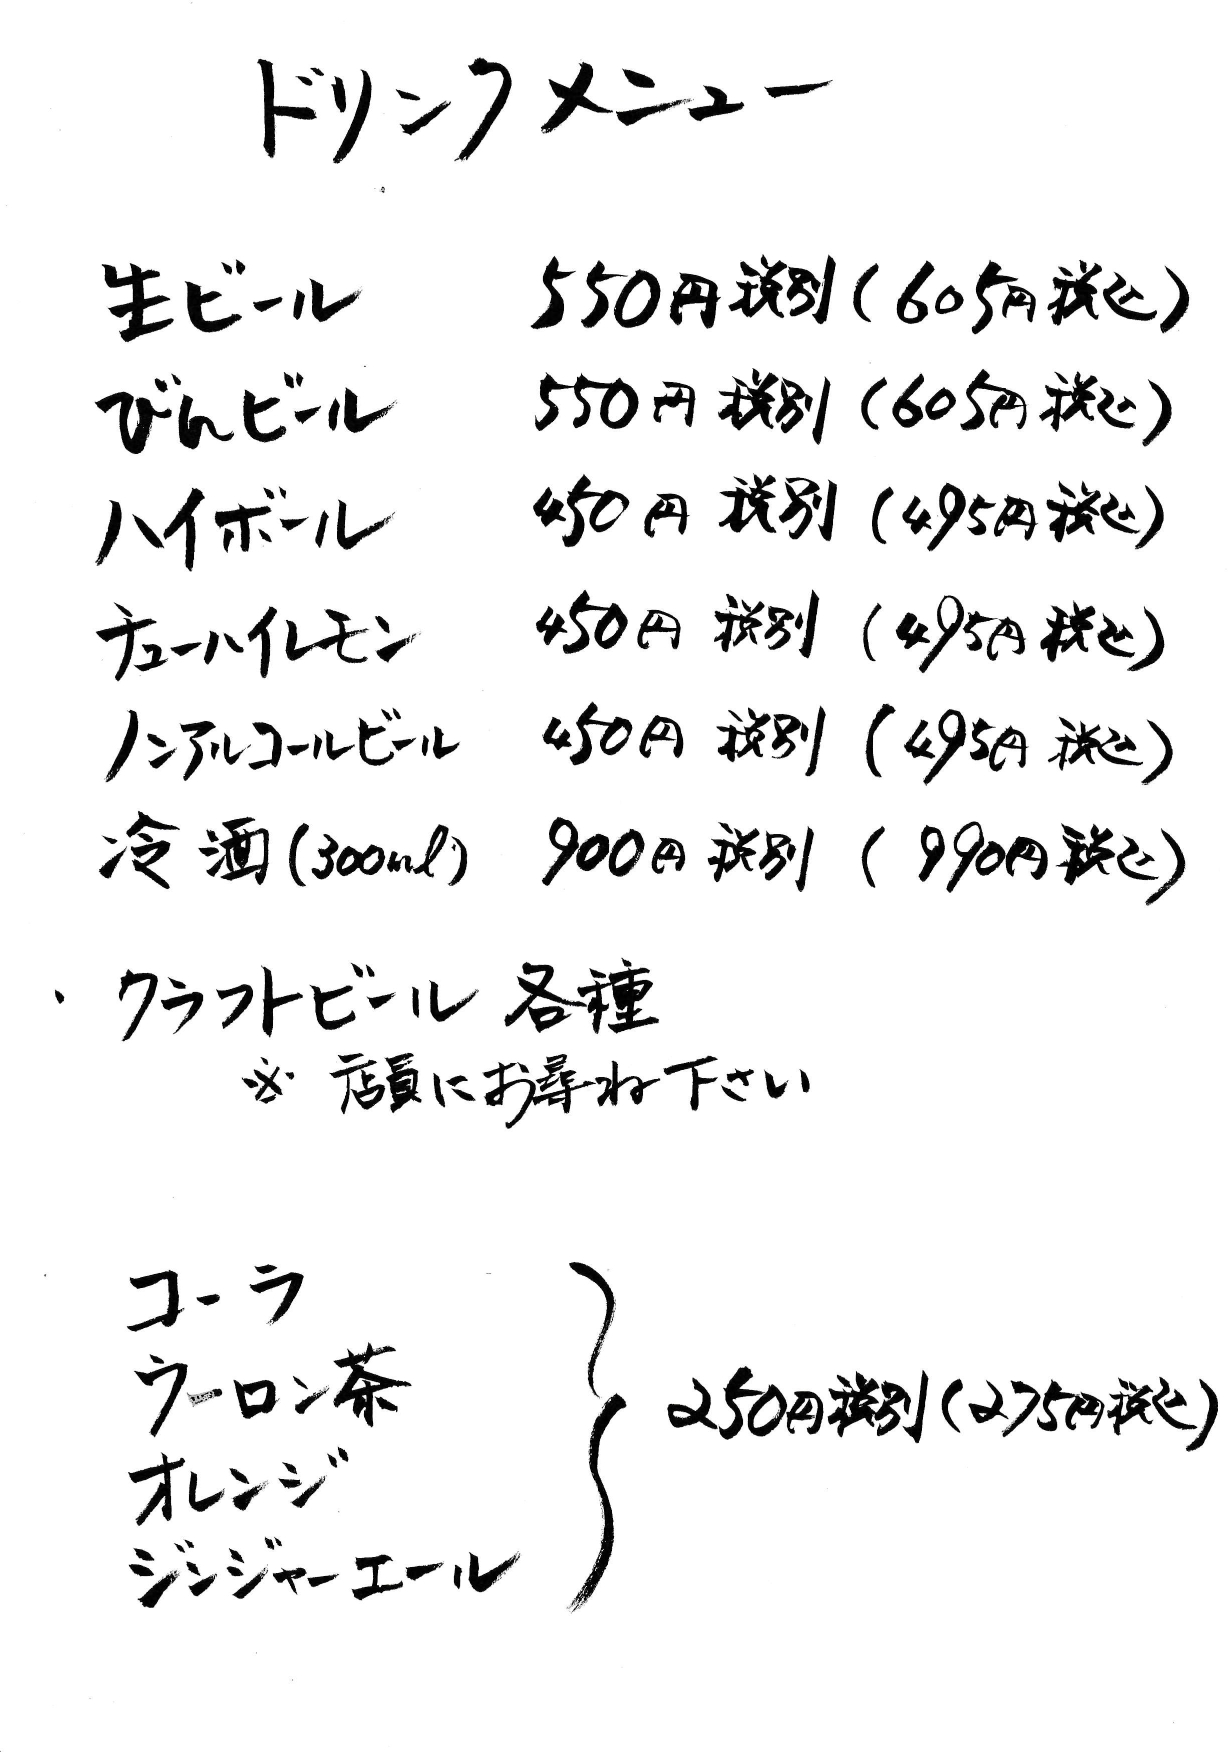 ドリンクメニュー
生ビール 550円 税別 (605円 税込)
びんビール 550円 税別 (605円 税込)
ハイボール 450円 税別 (495円 税込)
チューハイレモン 450円 税別 (495円 税込)
ノンアルコールビール 450円 税別 (495円 税込)
冷酒(300ml) 900円 税別 (990円 税込)
・クラフトビール 各種
※ 店員にお尋ね下さい
コーラ
ウーロン茶
オレンジ
ジンジャーエール
250円 税別 (275円 税込)